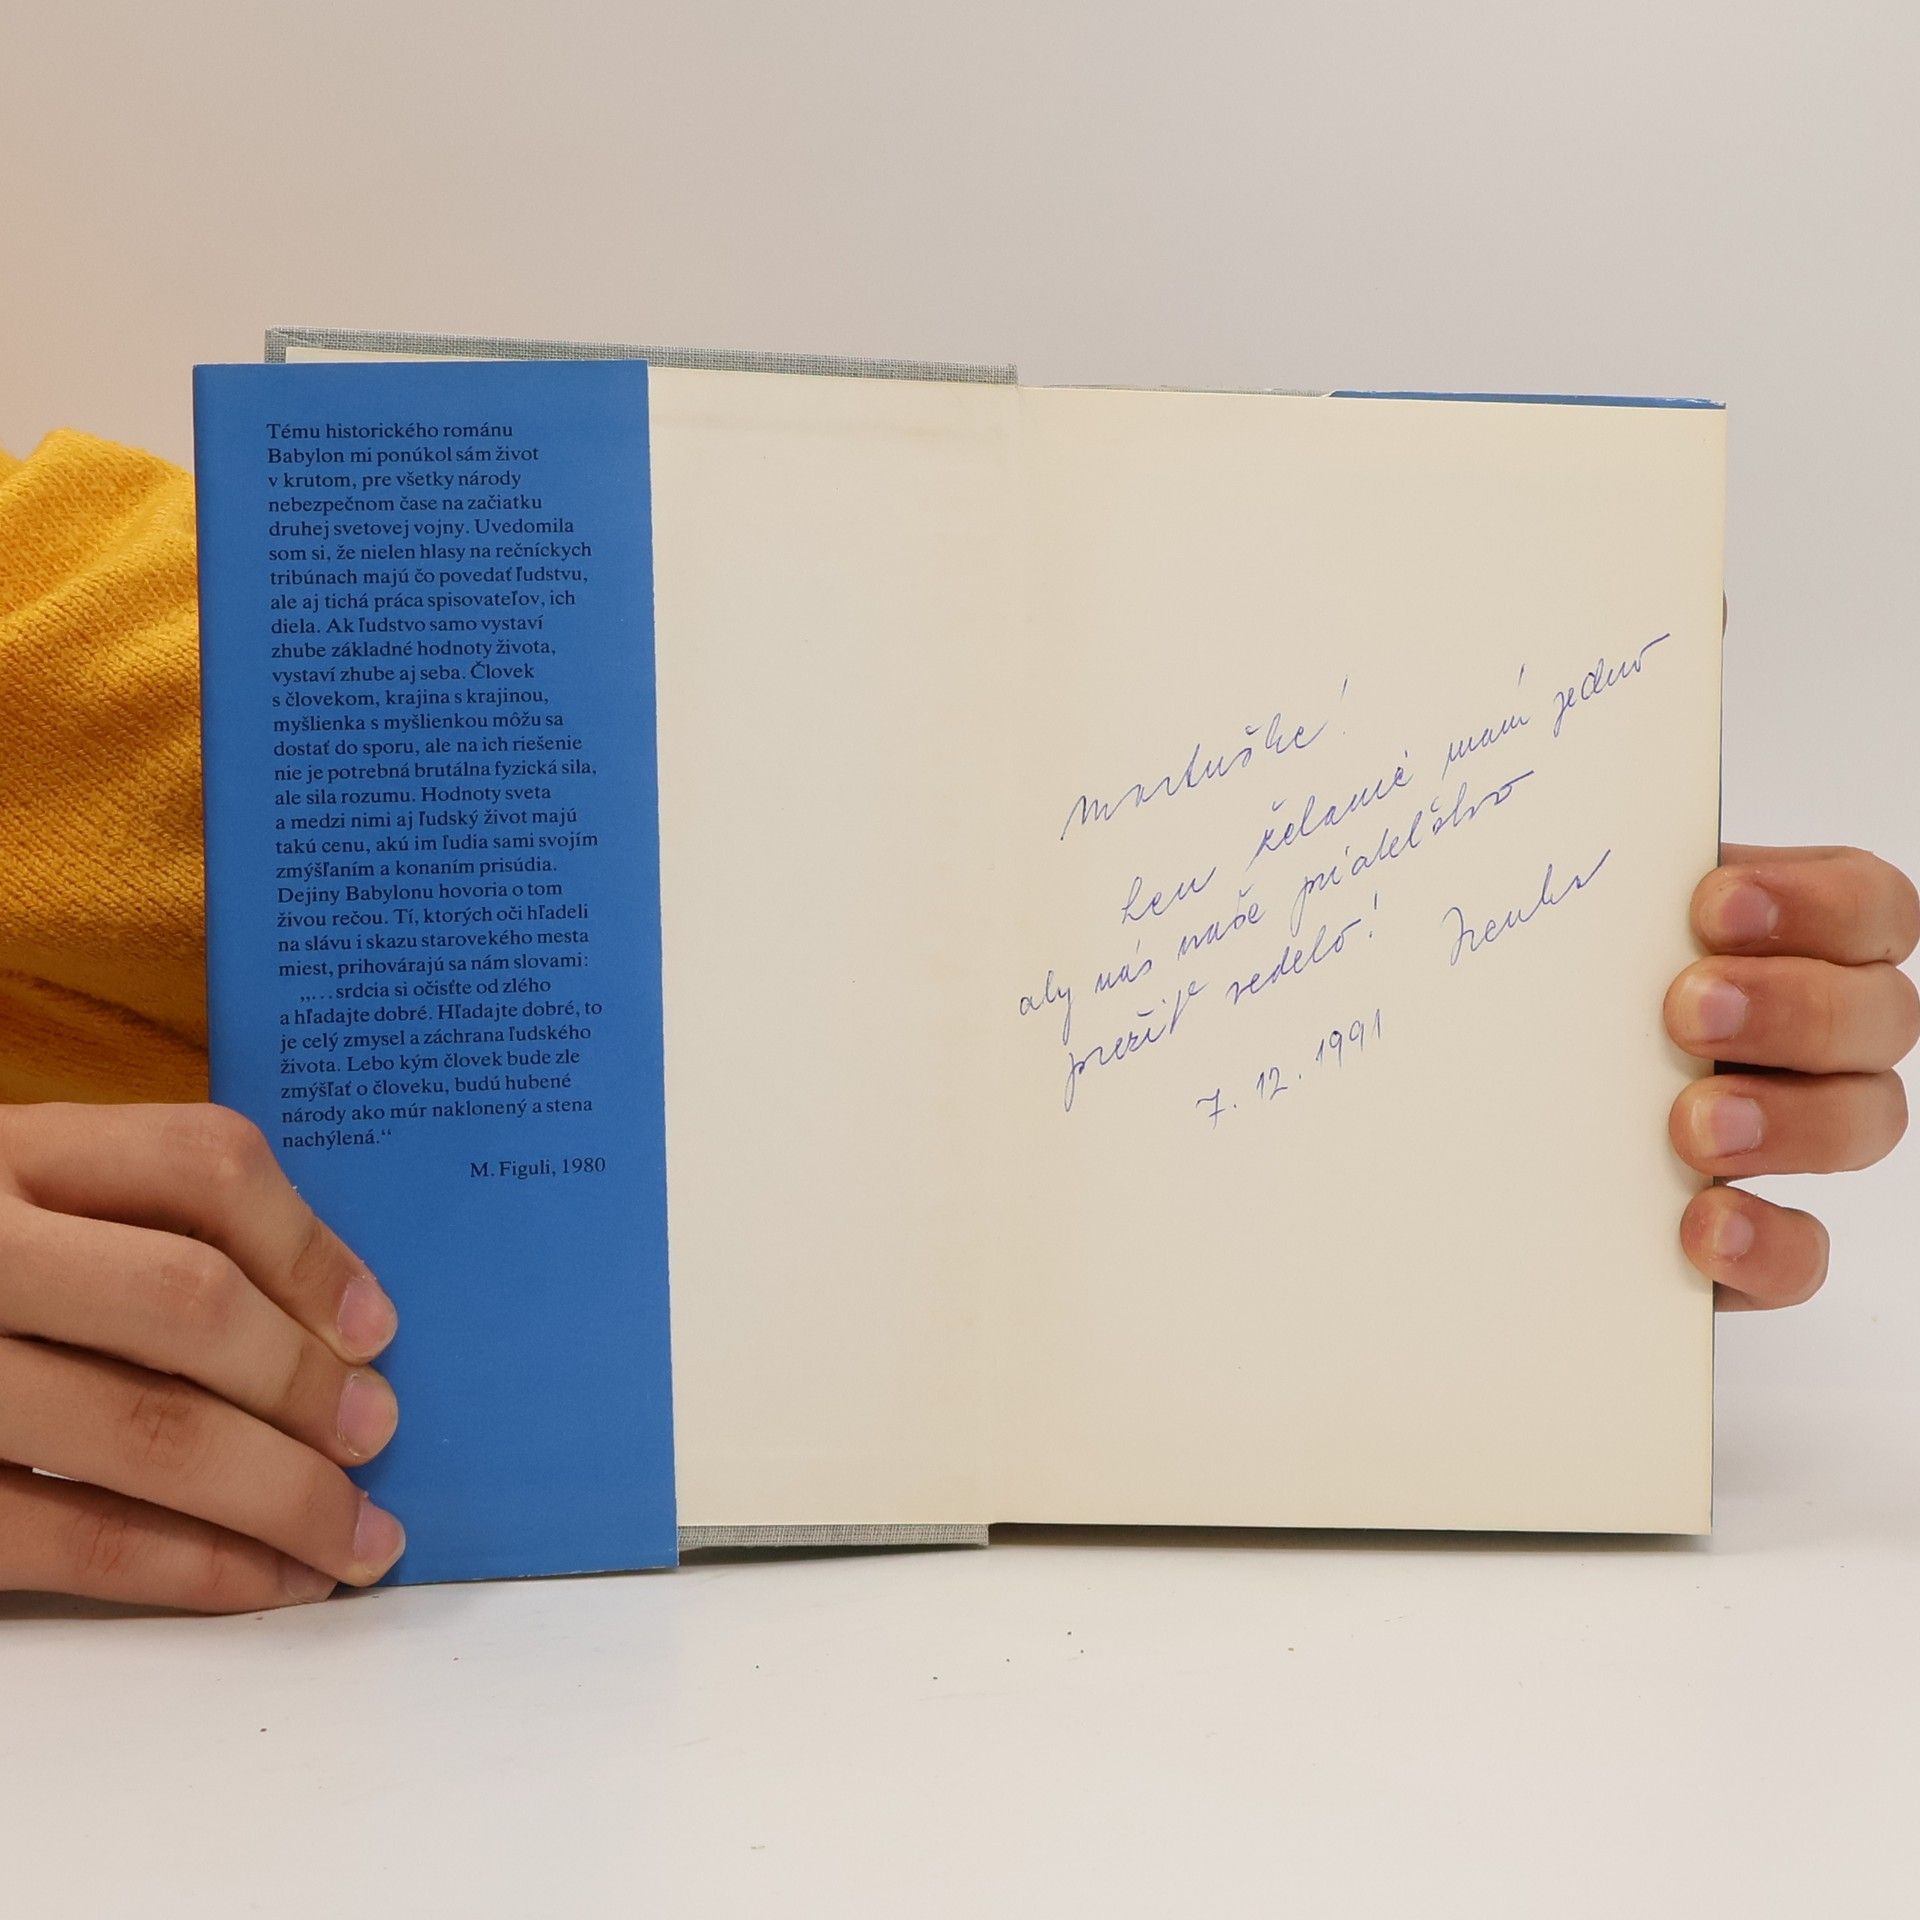 Tému historického románu
Babylon mi ponúkol sám život
v krutom, pre všetky národy
nebezpečnom čase na začiatku
druhej svetovej vojny. Uvedomila
som si, že nielen hlasy na rečníckych
tribúnach majú čo povedať ľudstvu,
ale aj tichá práca spisovateľov, ich
diela. Ak ľudstvo samo vystaví
zhube základné hodnoty života,
vystaví zhube aj seba. Človek
s človekom, krajina s krajinou,
myšlienka s myšlienkou môžu sa
dostať do sporu, ale na ich riešenie
nie je potrebná brutálna fyzická sila,
ale sila rozumu. Hodnoty sveta
a medzi nimi aj ľudský život majú
takú cenu, akú im ľudia sami svojím
zmýšľaním a konaním prisúdia.
Dejiny Babylonu hovoria o tom
živou rečou. Tí, ktorých oči hľadeli
na slávu i skazu starovekého mesta
miest, prihovárajú sa nám slovami:
„...srdcia si očisťte od zlého
a hľadajte dobré. Hľadajte dobré, to
je celý zmysel a záchrana ľudského
života. Lebo kým človek bude zle
zmýšľať o človeku, budú hubené
národy ako múr naklonený a stena
nachýlená.“
M. Figuli, 1980
Martuške!
Len želanie mám jedno
aby nás naše priateľstvo
prežiť vedelo!
7. 12. 1991